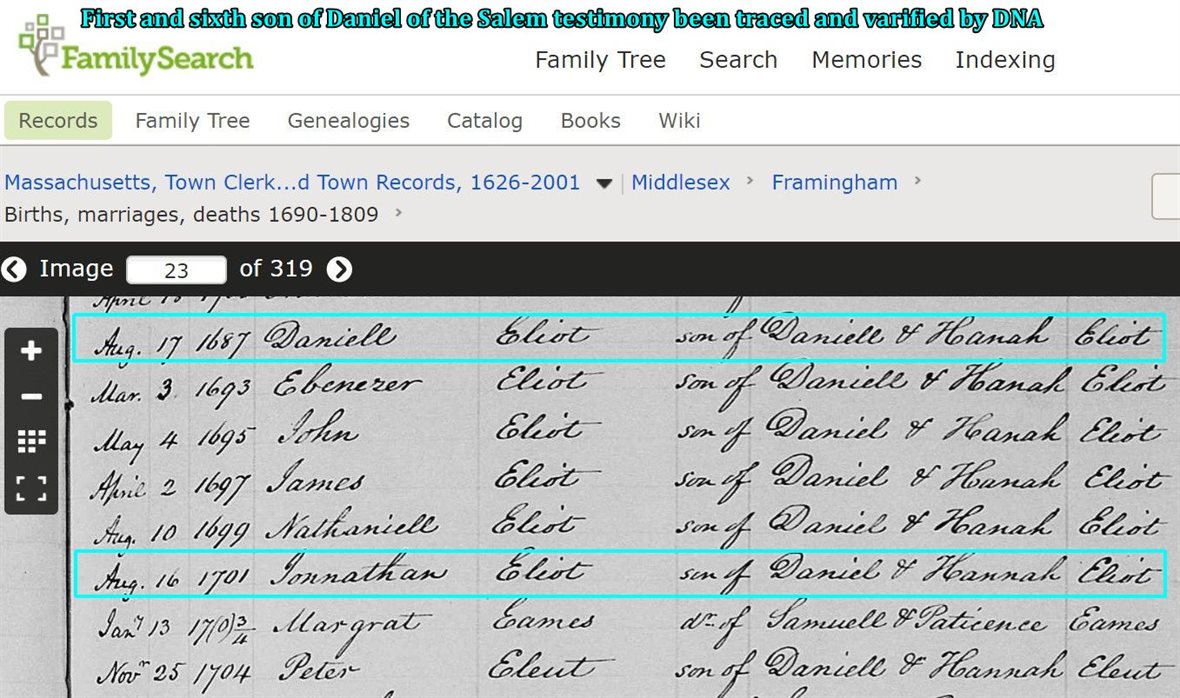 First and sixth son of Daniel of the Salem testimony been traced and varified by DNA
FamilySearch
Family Tree Search Memories Indexing
Records Family Tree Genealogies Catalog Books Wiki
Massachusetts, Town Clerk...d Town Records, 1626-2001 Middlesex Framingham
Births, marriages, deaths 1690-1809
Image 23 of 319
April
Aug. 17 1687 Daniell Eliot son of Daniell & Hanah Eliot
Mar. 3. 1693 Ebenezer Eliot son of Daniell & Hanah Eliot
May 4 1695 John Eliot son of Daniel & Hanah Eliot
April 2 1697 James Eliot son of Daniel & Hanah Eliot
Aug. 10 1699 Nathaniell Eliot son of Daniel & Hanah Eliot
Aug. 16 1701 Jonnathan Eliot son of Daniel & Hannah Eliot
Jany 13 17(0)3/4 Margrat Eames dr. of Samuell & Paticence Eames
Novr 25 1704 Peter Eleut son of Daniell & Hannah Eleut